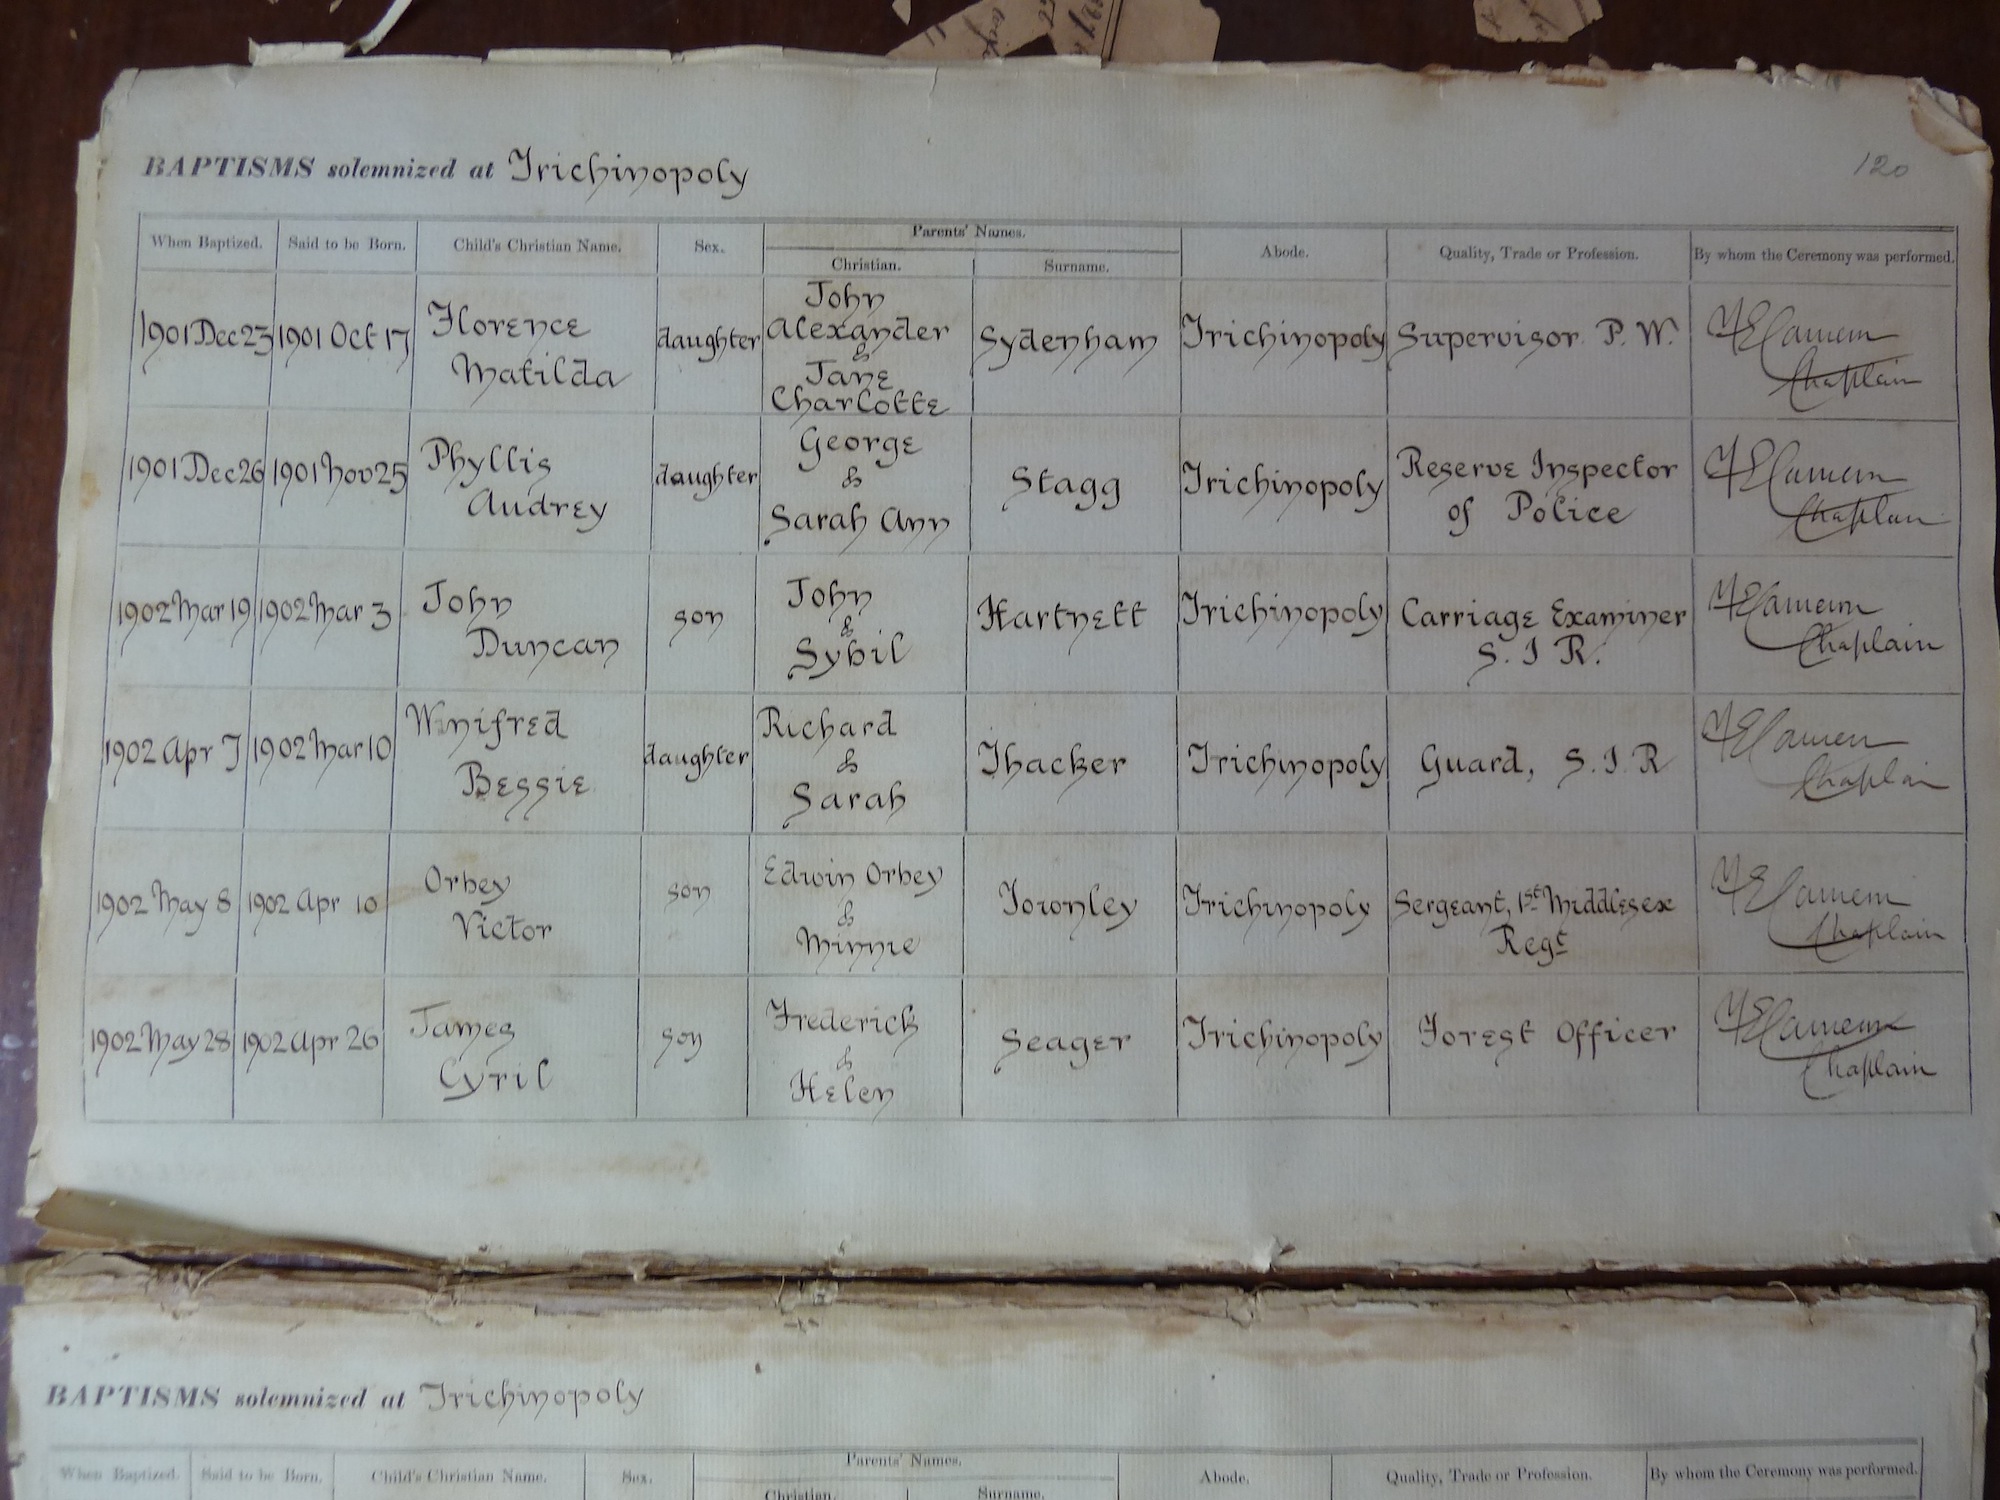 BAPTISMS solemnized at Trichinopoly
120
When Baptized. Said to be Born. Child's Christian Name. Sex. Parents' Names. Abode. Quality, Trade or Profession. By whom the Ceremony was performed.
Christian. Surname.
1901 Dec 23 1901 Oct 17 Florence Matilda daughter John Alexander & Jane Charlotte Sydenham Trichinopoly Supervisor P. W. Chaplain
1901 Dec 26 1901 Nov 25 Phyllis Audrey daughter George & Sarah Ann Stagg Trichinopoly Reserve Inspector of Police Chaplain
1902 Mar 19 1902 Mar 3 John Duncan son John & Sybil Hartnett Trichinopoly Carriage Examiner S. I R. Chaplain
1902 Apr 7 1902 Mar 10 Winifred Bessie daughter Richard & Sarah Thacker Trichinopoly Guard, S. I. R Chaplain
1902 May 8 1902 Apr 10 Orbey Victor son Edwin Orbey & Minnie Townley Trichinopoly Sergeant, 1st Middlesex Regt Chaplain
1902 May 28 1902 Apr 26 James Cyril son Frederick & Helen Seager Trichinopoly Forest Officer Chaplain
BAPTISMS solemnized at Trichinopoly
When Baptized. Said to be Born. Child's Christian Name. Sex. Parents' Names. Abode. Quality, Trade or Profession. By whom the Ceremony was performed.
Christian. Surname.